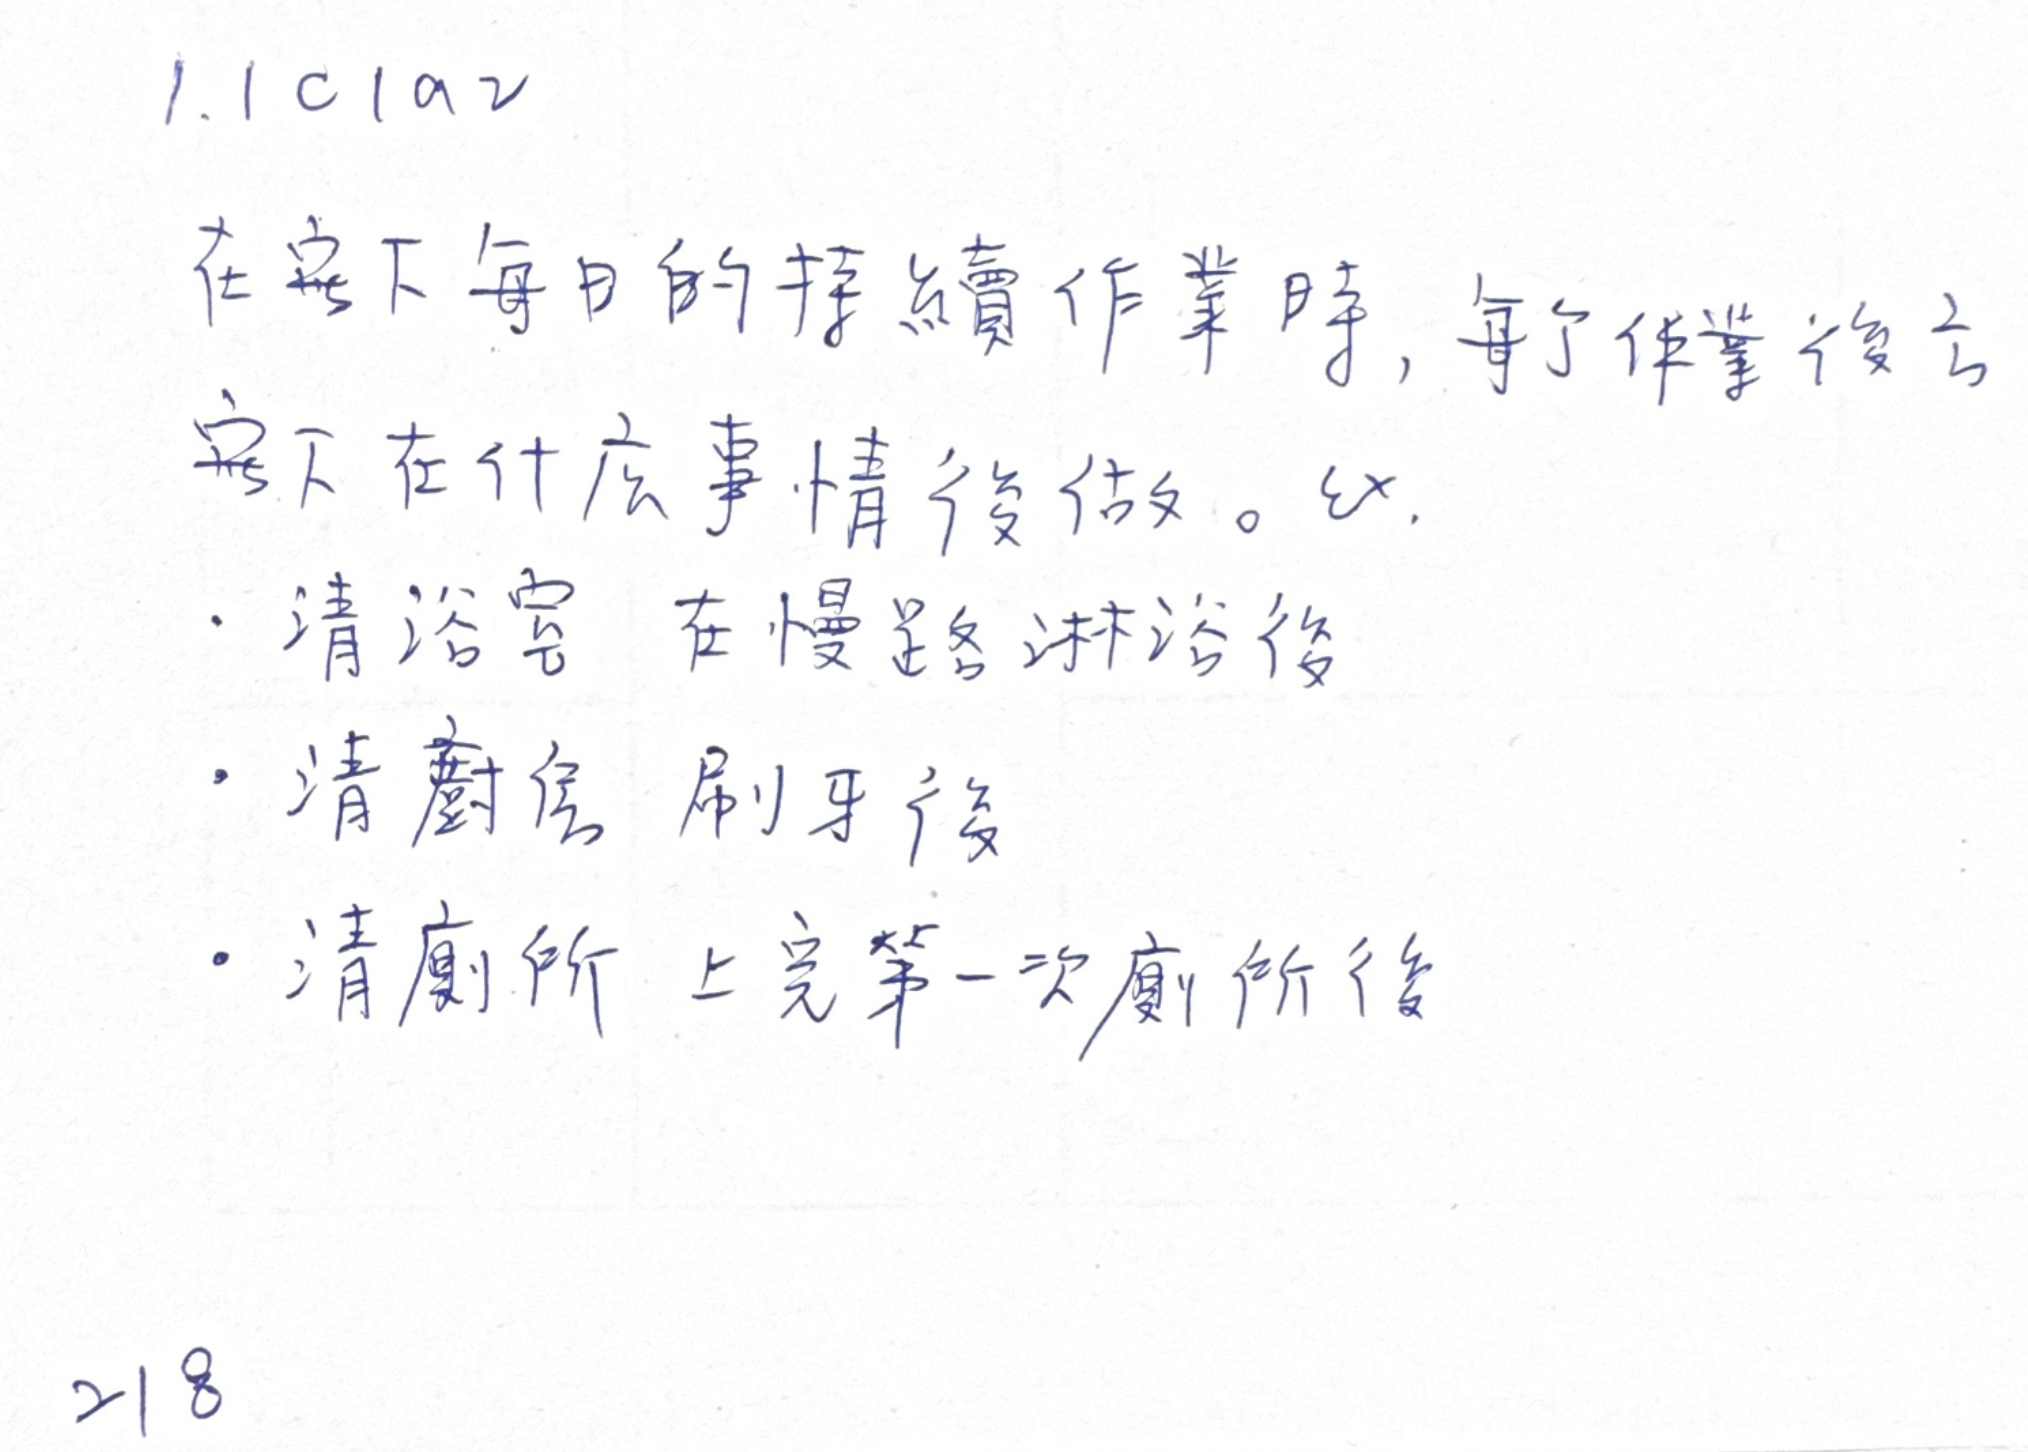 1.1c1a2
在寫下每日的持續作業時,每了作業後去
寫下在什広事情後做。ex.
· 清浴室 在慢路淋浴後
· 清廚房 刷牙後
· 清廁所 上完第一次廁所後
218